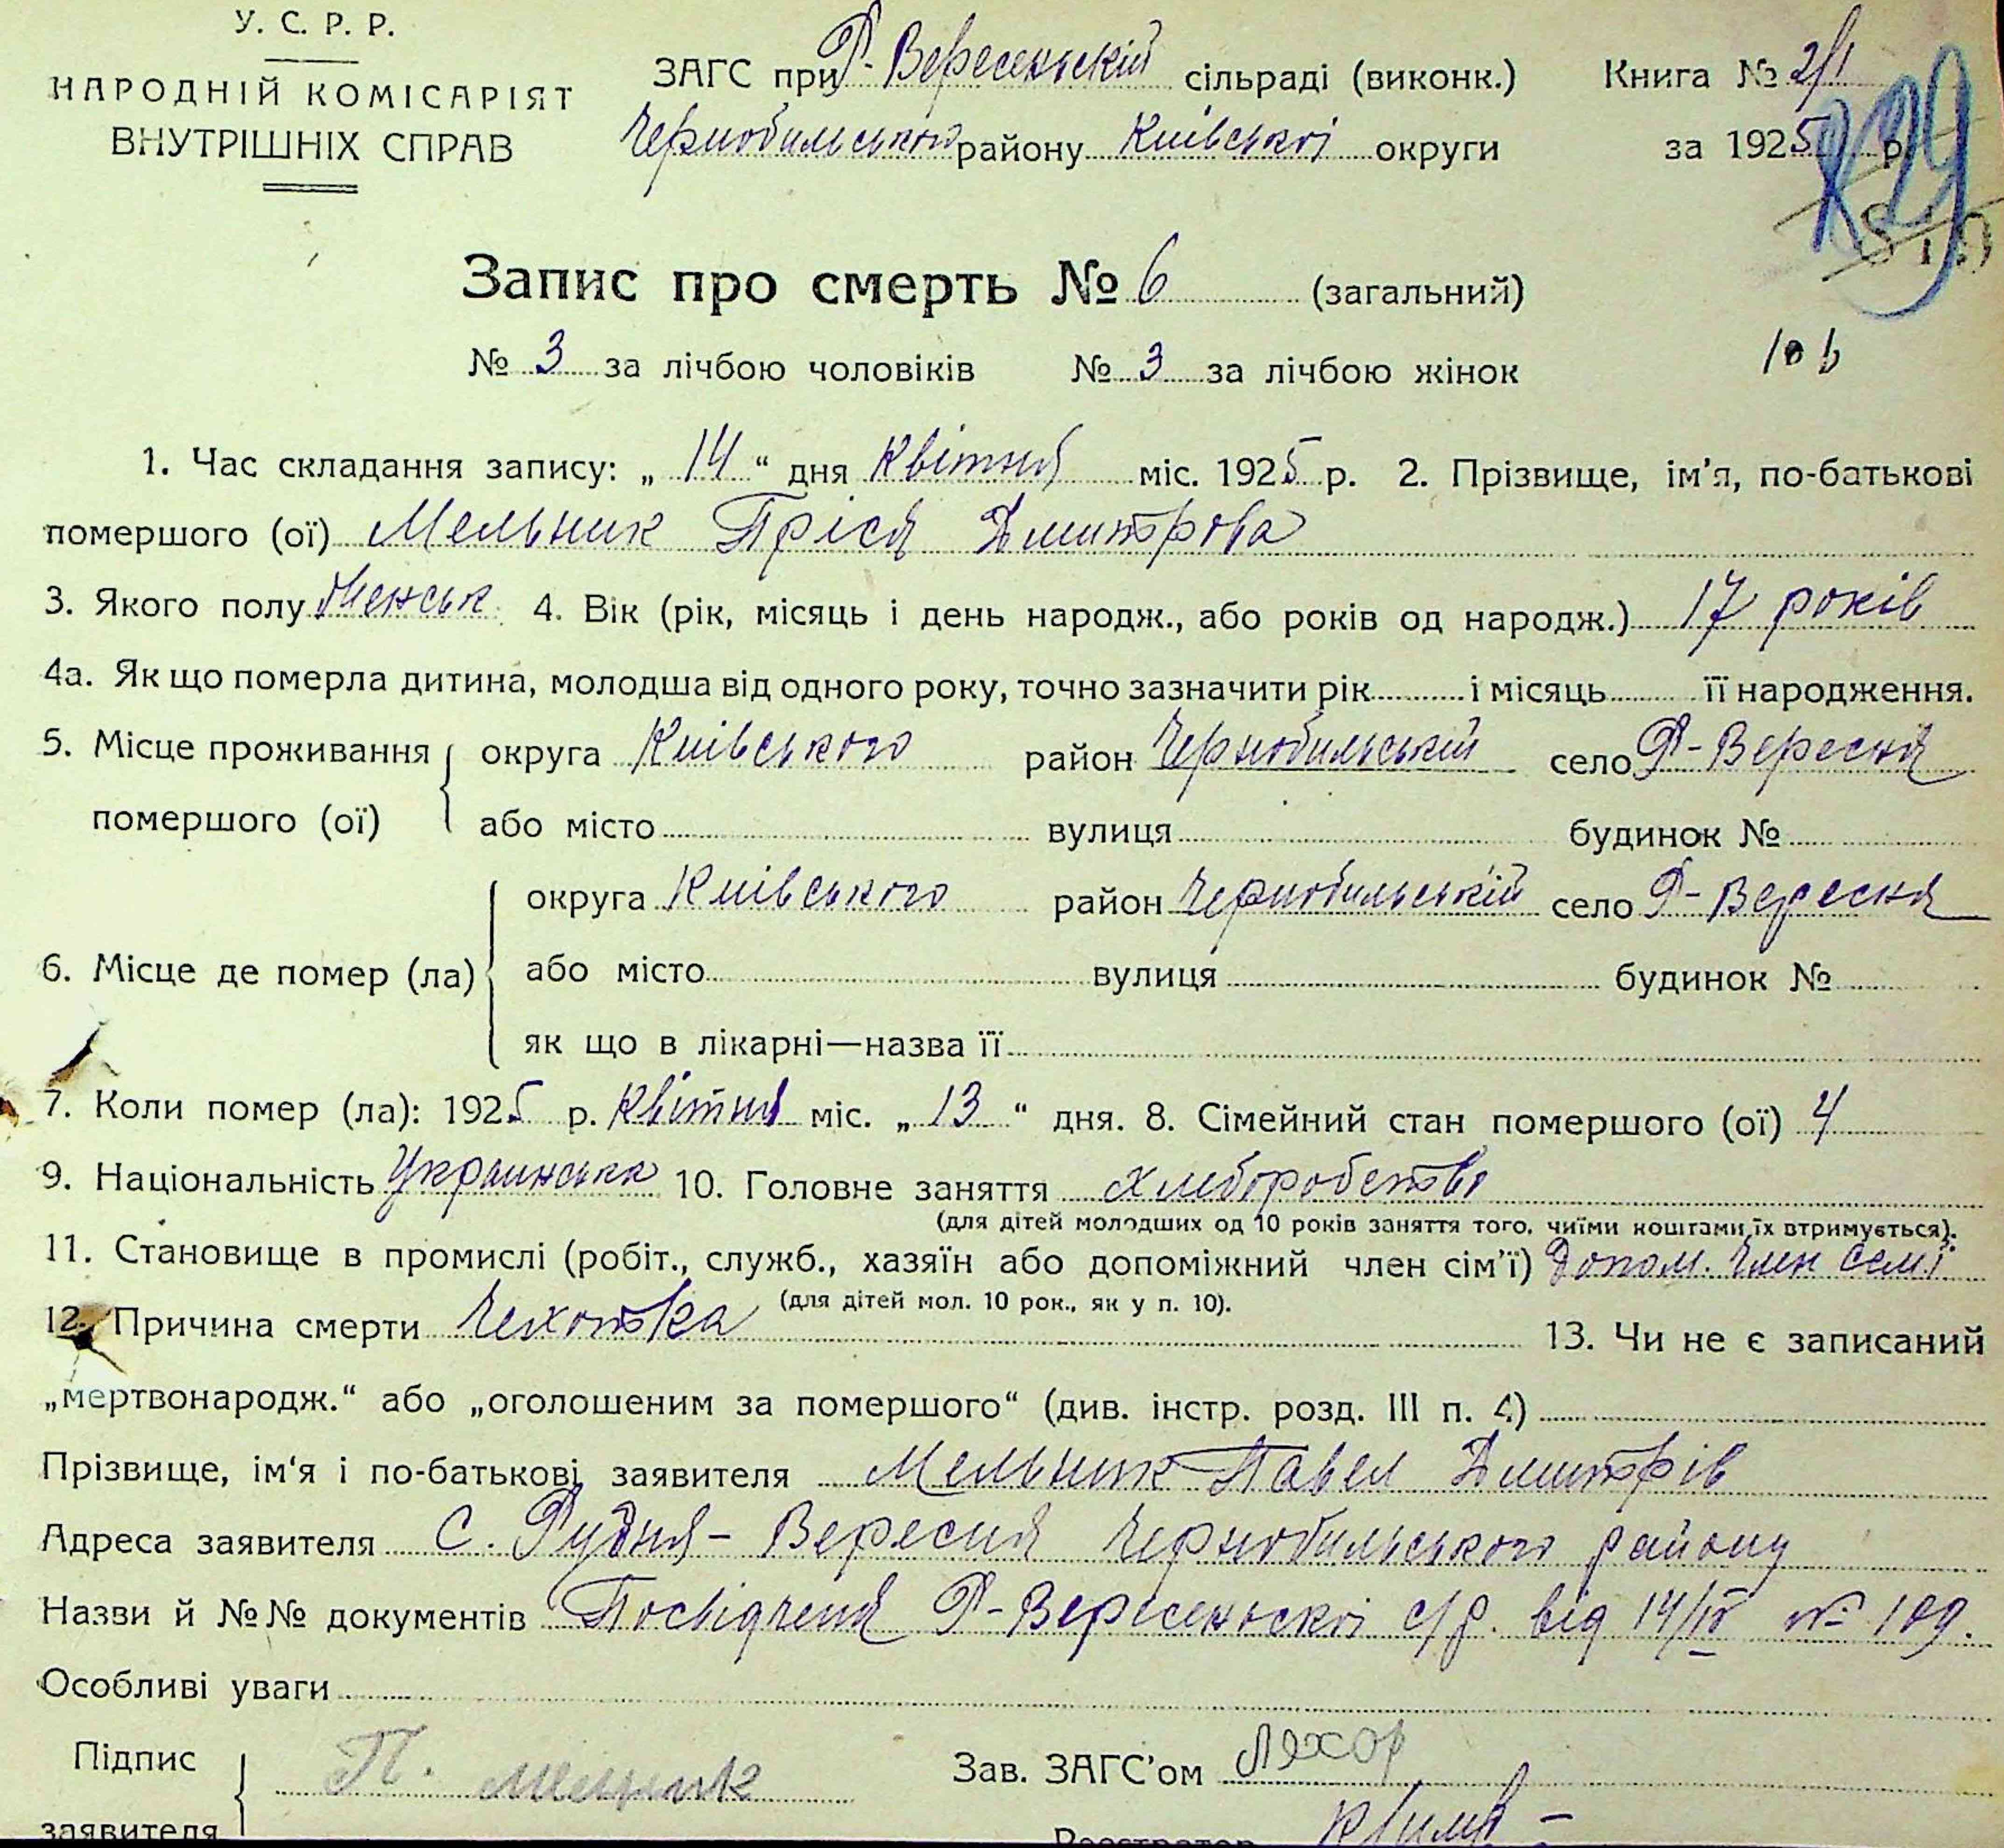 У. С. Р. Р.
НАРОДНІЙ КОМІСАРІЯТ
ВНУТРІШНІХ СПРАВ
ЗАГС при Р-Вересенській сільраді (виконк.)
Чернобильського району Київскої округи
Книга № 2/1
за 1925 р.
Запис про смерть № 6 (загальний)
№ 3 за лічбою чоловіків № 3 за лічбою жінок
1. Час складання запису: „ 14 “ дня Квітня міс. 1925 р. 2. Прізвище, ім'я, по-батькові
помершого (ої) Мельник Пріся Дмитрова
3. Якого полу Женськ. 4. Вік (рік, місяць і день народж., або років од народж.) 17 років
4а. Як що померла дитина, молодша від одного року, точно зазначити рік і місяць її народження.
5. Місце проживання помершого (ої) округа Київського район Чернобильській село Р-Вересня
або місто вулиця будинок №
6. Місце де помер (ла) округа Київського район Чернобильській село Р-Вересня
або місто вулиця будинок №
як що в лікарні—назва її
7. Коли помер (ла): 1925 р. Квітня міс. „ 13 “ дня. 8. Сімейний стан помершого (ої) 4
9. Національність Украинська 10. Головне заняття хлеборобство
(для дітей молодших од 10 років заняття того, чиїми коштами їх втримується).
11. Становище в промислі (робіт., служб., хазяїн або допоміжний член сім'ї) Допом. член семї
(для дітей мол. 10 рок., як у п. 10).
12. Причина смерти Чехотка 13. Чи не є записаний
„мертвонародж.“ або „оголошеним за помершого“ (див. інстр. розд. III п. 4)
Прізвище, ім‘я і по-батькові заявителя Мельник Павел Дмитрів
Адреса заявителя С. Рудня-Вересня Чернобильського району
Назви й №№ документів Посвідченя Р-Вересеньскої с/р. від 14/IV № 109.
Особливі уваги
Підпис заявителя П. Мельник
Зав. ЗАГС'ом Ляхор
Реєстратор